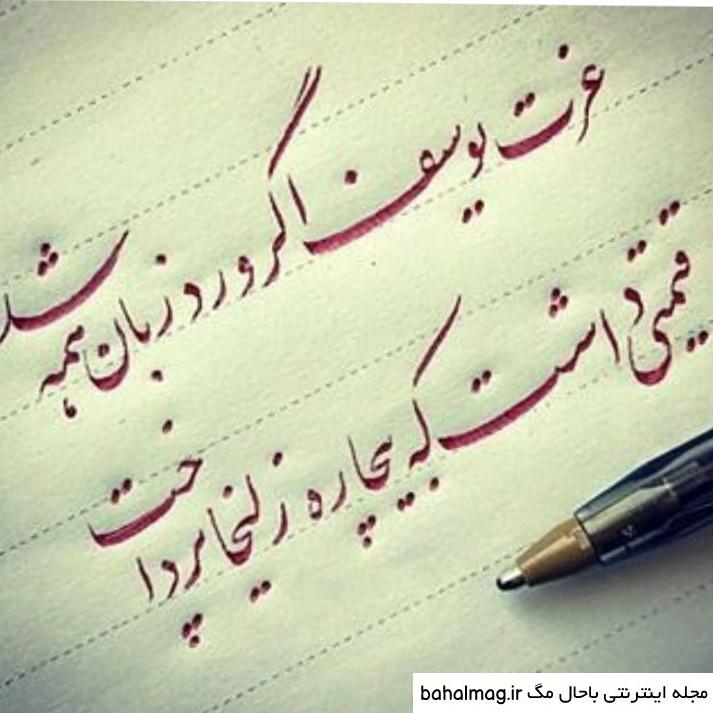 عزت یوسف اگر ورد زبان همه شد
قیمتی داشت که بیچاره زلیخا پرداخت
مجله اینترنتی باحال مگ bahalmag.ir